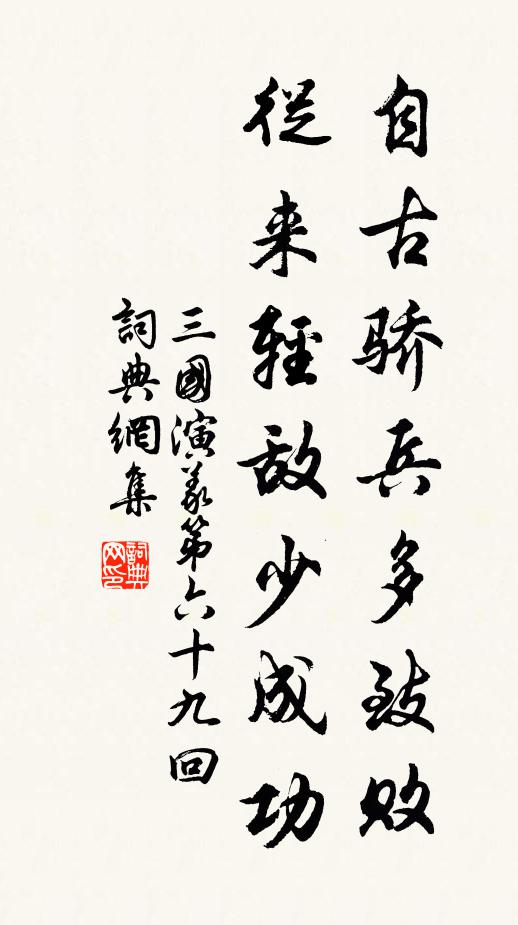 自古骄兵多致败
從来輕敌少成功
三國演義第六十九回
詞典網集
詞典网印